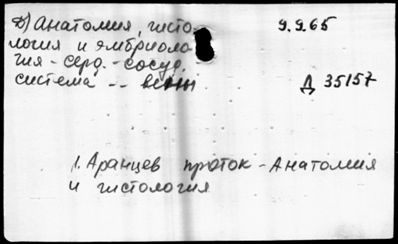 д) Анатомия, гисто-
логия и эмбриоло-
гия - серд. - сосуд.
система -- вены
9.9.65
Д 35157
1. Аранцев проток - Анатомия
и гистология